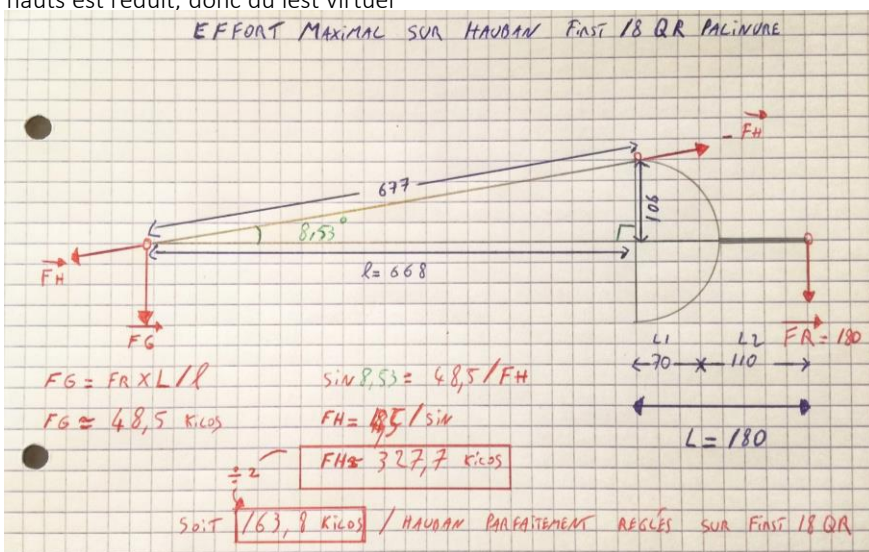 hauts est réduit, donc du lest virtuel
EFFORT MAXIMAL SUR HAUBAN FIRST 18 QR PALINURE
- FH
677
106
8,53°
l= 668
FH
FG
FR = 180
L1 L2
70 110
L = 180
FG = FR X L / l
FG ≈ 48,5 KILOS
SIN 8,53 = 48,5 / FH
FH = 48,5 / SIN
FH≈ 327,7 KILOS
÷ 2
SOIT 163,8 KILOS / HAUBAN PARFAITEMENT REGLÉS SUR FIRST 18 QR